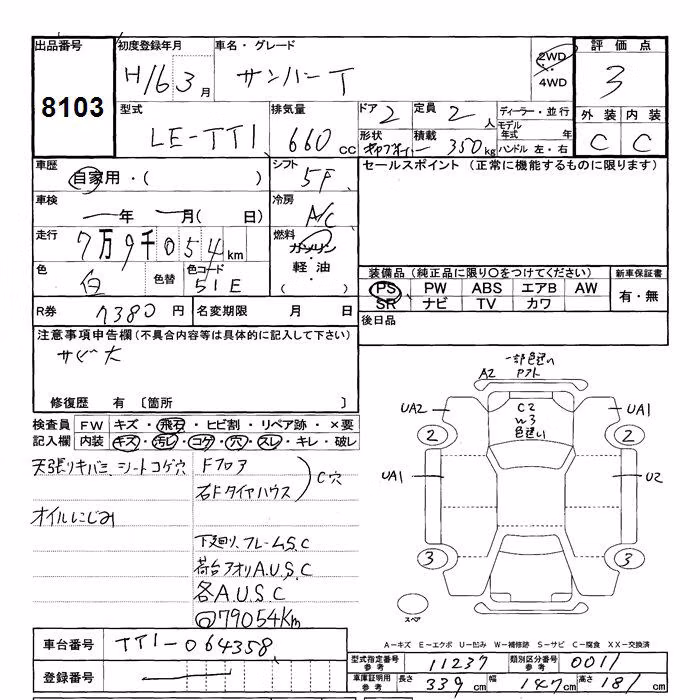 出品番号 初度登録年月 車名・グレード 2WD 評価点
8103 H16 3月 サンバー T 4WD 3
型式 排気量 ドア 2 定員 2人 ディーラー・並行 外装 内装
LE-TT1 660cc 形状 積載 350kg モデル年式 年 C C
ハンドル 左・右
車歴 シフト 5F セールスポイント (正常に機能するものに限ります)
自家用・( )
車検 ー年 ー月( 日) 冷房 A/C
走行 7万9千054km 燃料 ガソリン
軽油
( )
色 白 色替 色コード 51E 装備品(純正品に限り○をつけてください) 新車保証書
PS PW ABS エアB AW 有・無
SR ナビ TV カワ
R券 7380円 名変期限 月 日 後日品
注意事項申告欄(不具合内容等は具体的に記入して下さい)
サビ大
修復歴 有 〔箇所 〕
検査員 FW キズ・飛石・ヒビ割・リペア跡・×要
記入欄 内装 キズ・汚レ・コゲ・穴・スレ・キレ・破レ
天張リキバミ、シートコゲ穴 Fフロア
右Fタイヤハウス C穴
オイルにじみ
下廻り、フレームS.C
荷台アオリA.U.S.C
各A.U.S.C
◎79054Km
一部色違い
A2
C2
W3
色違い
UA2 UA1
2 2
UA1 U2
3 3
スペア
A-キズ E-エクボ U-凹み W-補修跡 S-サビ C-腐食 XX-交換済
車台番号 TT1-064358
型式指定番号 参考 11237 類別区分番号 参考 0011
登録番号 ー
車庫証明用 参考 長さ 339cm 幅 147cm 高さ 181cm